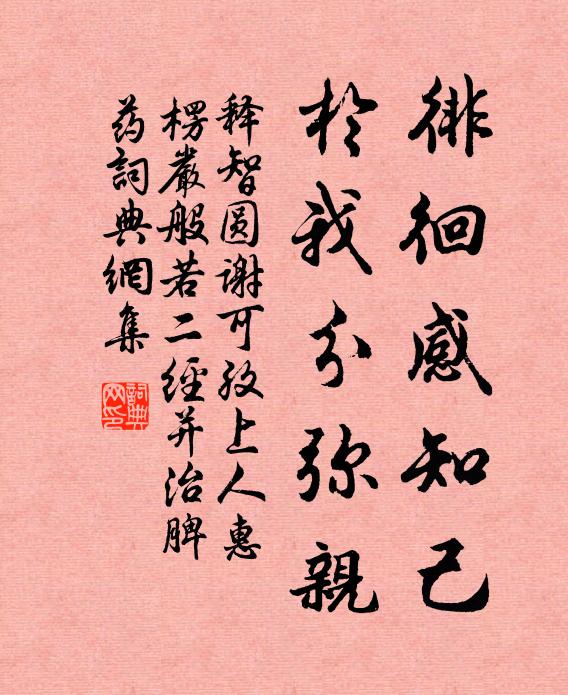 徘徊感知己
於我分弥親
释智圆谢可孜上人惠
楞嚴般若二經并治脾
药詞典網集
詞典
网印